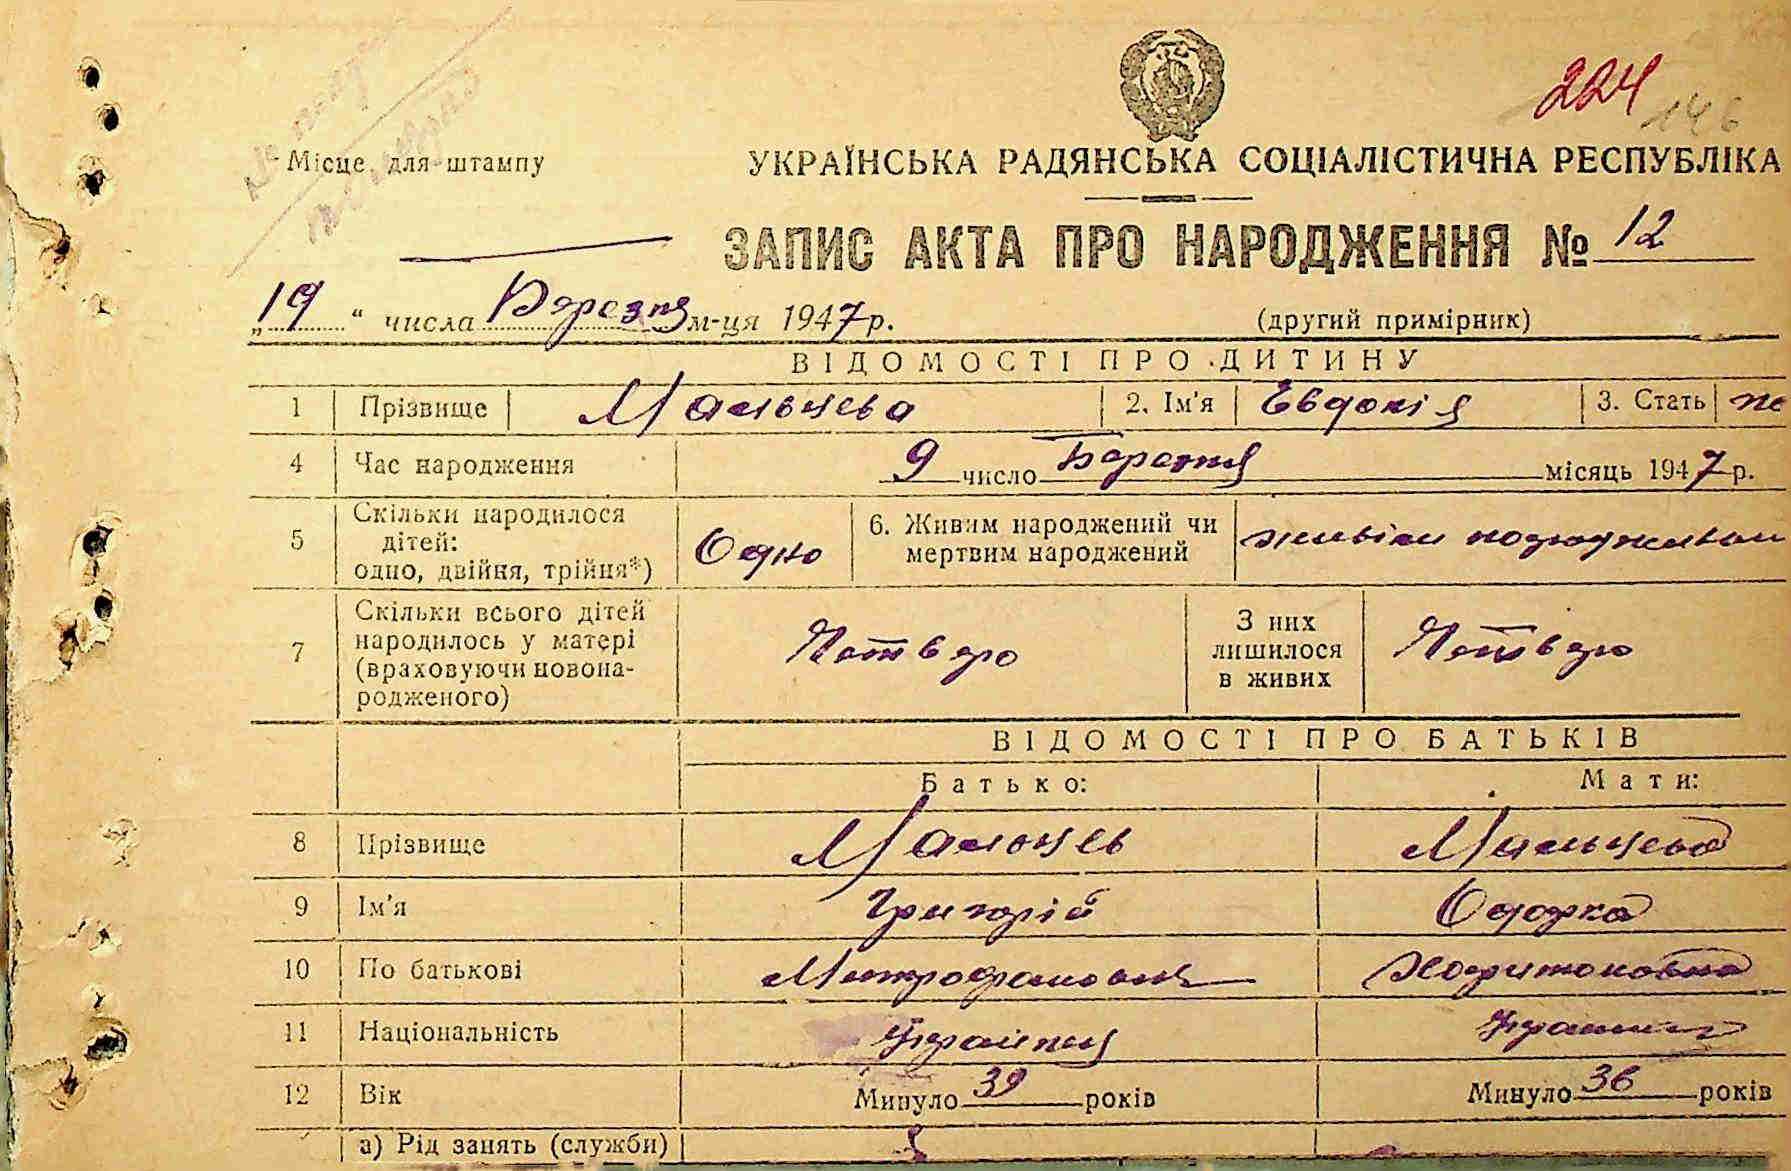 224
146
Місце для штампу
УКРАЇНСЬКА РАДЯНСЬКА СОЦІАЛІСТИЧНА РЕСПУБЛІКА
ЗАПИС АКТА ПРО НАРОДЖЕННЯ № 12
„19“ числа Березня м-ця 1947 р. (другий примірник)
ВІДОМОСТІ ПРО ДИТИНУ
1 Прізвище Мальцева 2. Ім'я Евдокія 3. Стать
4 Час народження 9 число Березня місяць 1947 р.
5 Скільки народилося дітей: одно, двійня, трійня*) Одно 6. Живим народжений чи мертвим народжений
7 Скільки всього дітей народилось у матері (враховуючи новонародженого) Четверо З них лишилося в живих Четверо
ВІДОМОСТІ ПРО БАТЬКІВ
Батько: Мати:
8 Прізвище Мальцев Мальцева
9 Ім'я Григорій Одарка
10 По батькові Митрофанович Харитоновна
11 Національність Українец
12 Вік Минуло 39 років Минуло 36 років
а) Рід занять (служби)